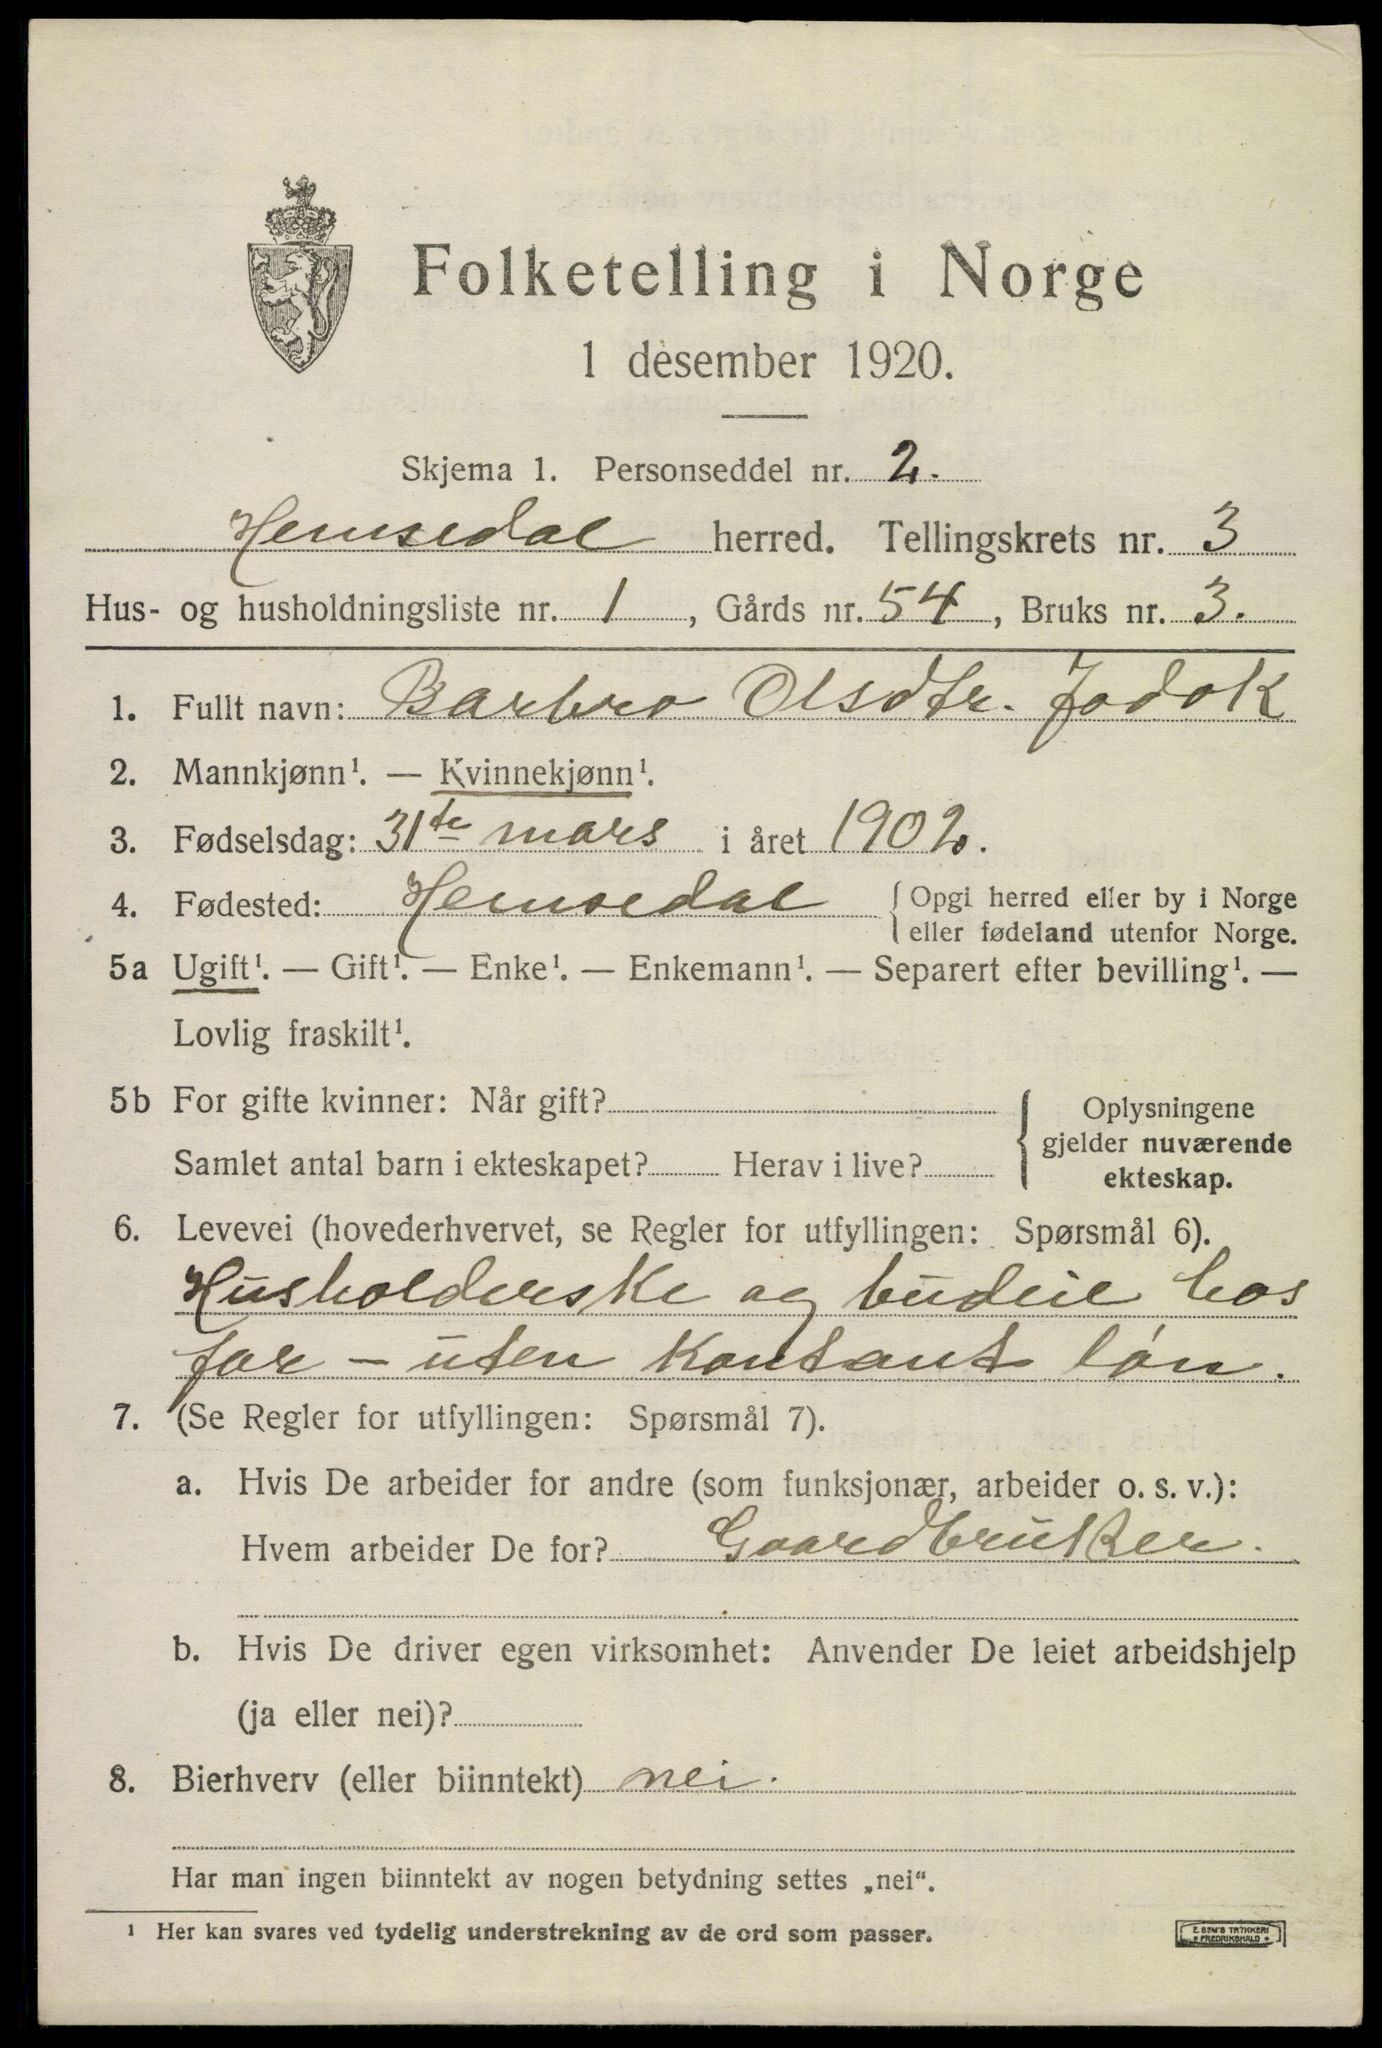 Folketelling i Norge
1 desember 1920.
Skjema 1. Personseddel nr. 2.
Hemsedal herred. Tellingskrets nr. 3
Hus- og husholdningsliste nr. 1, Gårds nr. 54, Bruks nr. 3.
1. Fullt navn: Barbro Olsdtr. Jodok
2. Mannkjønn¹. — Kvinnekjønn¹.
3. Fødselsdag: 31te mars i året 1902.
4. Fødested: Hemsedal { Opgi herred eller by i Norge
eller fødeland utenfor Norge.
5a Ugift¹. — Gift¹. — Enke¹. — Enkemann¹. — Separert efter bevilling¹. —
Lovlig fraskilt¹.
5b For gifte kvinner: Når gift?
Samlet antal barn i ekteskapet? Herav i live?
{ Oplysningene
gjelder nuværende
ekteskap.
6. Levevei (hovederhvervet, se Regler for utfyllingen: Spørsmål 6).
Husholderske og budeie hos
far – uten kontant løn.
7. (Se Regler for utfyllingen: Spørsmål 7).
a. Hvis De arbeider for andre (som funksjonær, arbeider o. s. v.):
Hvem arbeider De for? Gaardbruker.
b. Hvis De driver egen virksomhet: Anvender De leiet arbeidshjelp
(ja eller nei)?
8. Bierhverv (eller biinntekt) nei.
Har man ingen biinntekt av nogen betydning settes „nei“.
¹ Her kan svares ved tydelig understrekning av de ord som passer.
E. SEM'S TRYKKERI
FREDRIKSHALD